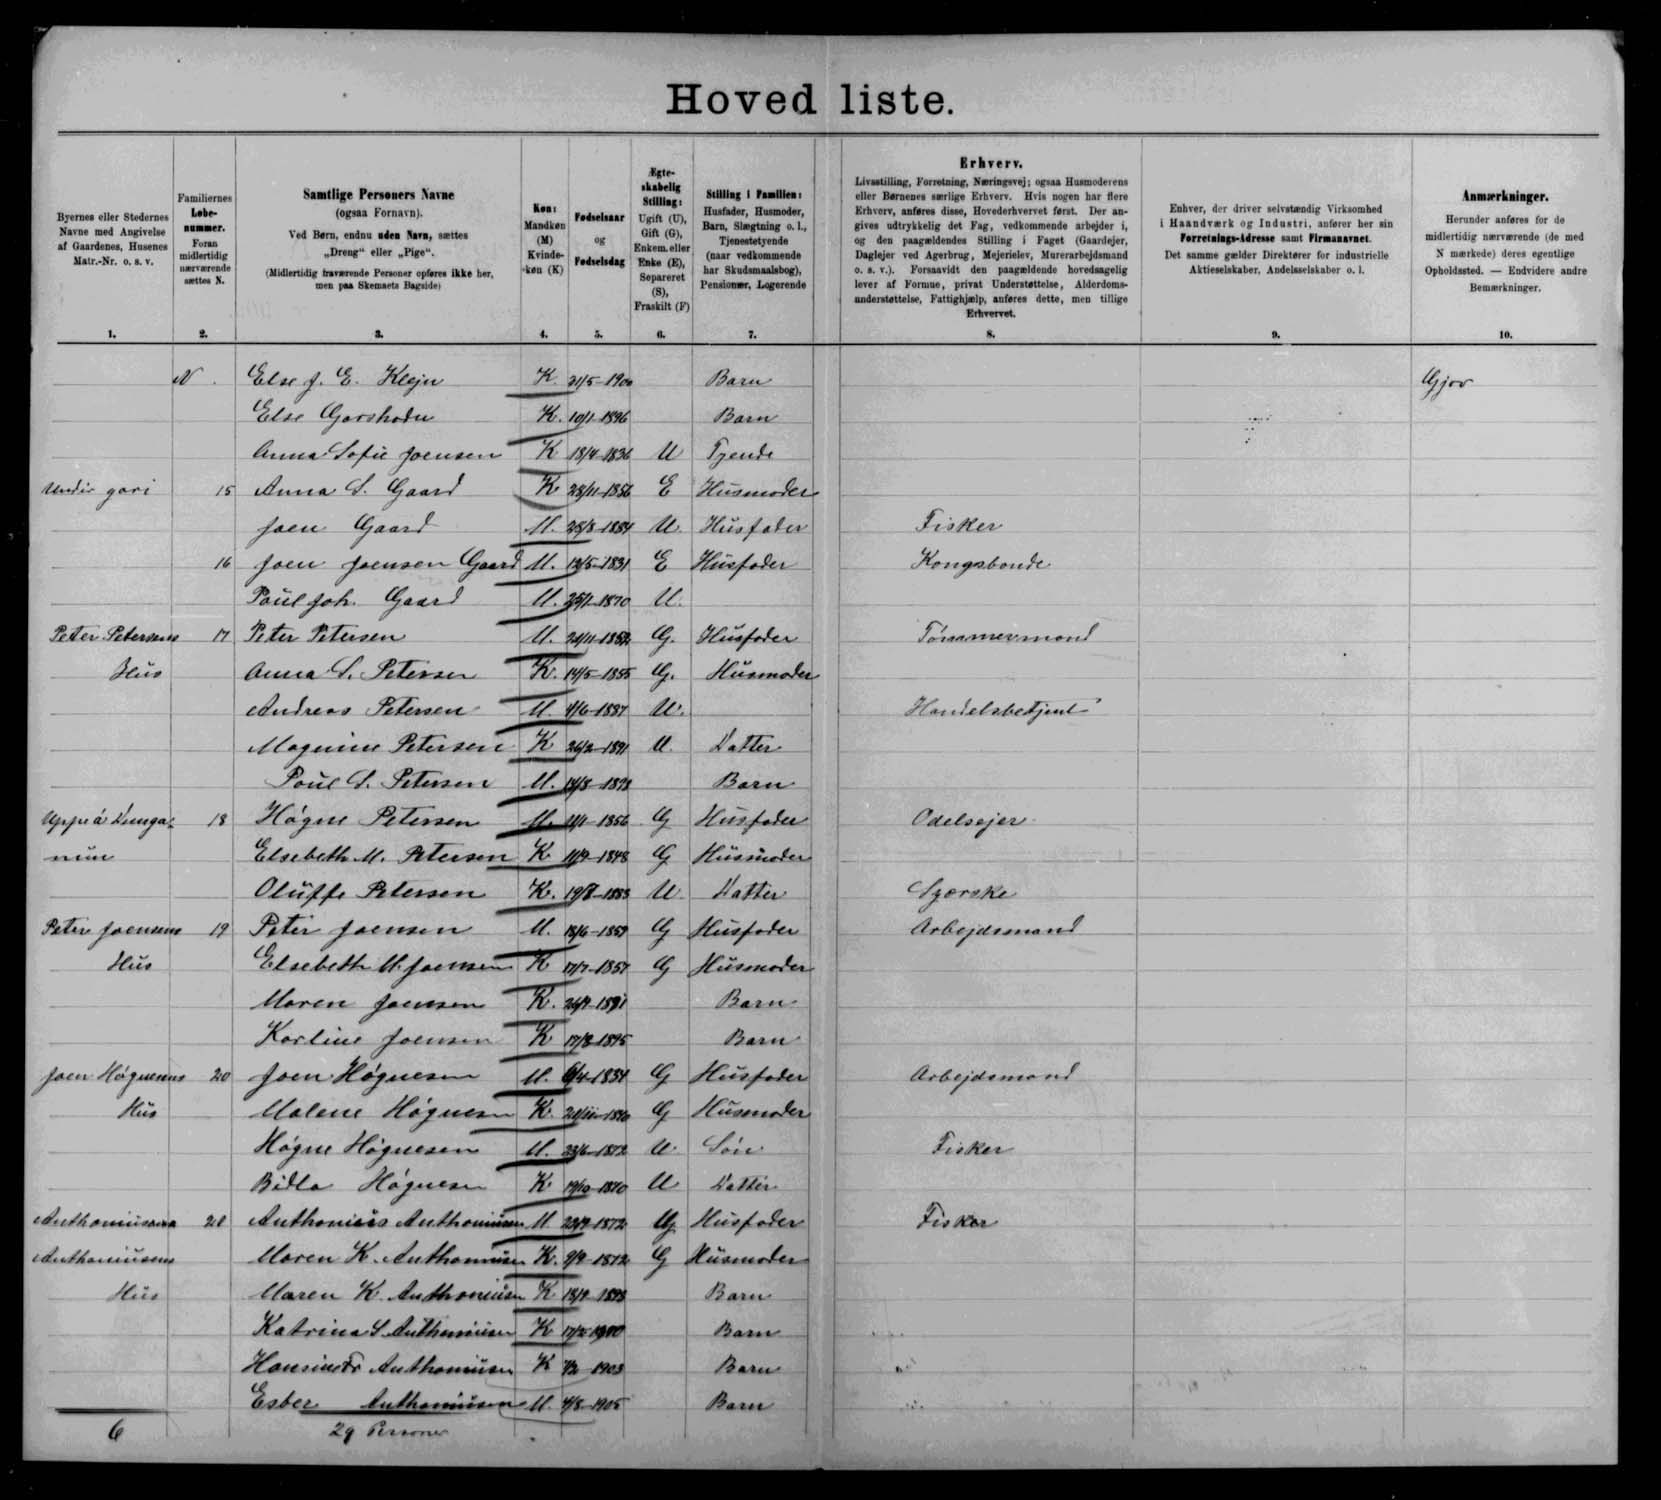 Hoved liste.
Byernes eller Stedernes Navne med Angivelse af Gaardenes, Husenes Matr.-Nr. o. s. v.
Familiernes Løbenummer. Foran midlertidig nærværende sættes N.
Samtlige Personers Navne (ogsaa Fornavn). Ved Børn, endnu uden Navn, sættes „Dreng" eller „Pige". (Midlertidig fraværende Personer opføres ikke her, men paa Skemaets Bagside)
Køn: Mandkøn (M) Kvindekøn (K)
Fødselsaar og Fødselsdag
Ægteskabelig Stilling: Ugift (U), Gift (G), Enkem. eller Enke (E), Separeret (S), Fraskilt (F)
Stilling i Familien: Husfader, Husmoder, Barn, Slægtning o. l., Tjenestetyende (naar vedkommende har Skudsmaalsbog), Pensionær, Logerende
Erhverv. Livsstilling, Forretning, Næringsvej; ogsaa Husmoderens eller Børnenes særlige Erhverv. Hvis nogen har flere Erhverv, anføres disse, Hovederhvervet først. Der angives udtrykkelig det Fag, vedkommende arbejder i, og den paagældendes Stilling i Faget (Gaardejer, Daglejer ved Agerbrug, Mejerielev, Murerarbejdsmand o. s. v.). Forsaavidt den paagældende hovedsagelig lever af Formue, privat Understøttelse, Alderdomsunderstøttelse, Fattighjælp, anføres dette, men tillige Erhvervet.
Enhver, der driver selvstændig Virksomhed i Haandværk og Industri, anfører her sin Forretnings-Adresse samt Firmanavnet. Det samme gælder Direktører for industrielle Aktieselskaber, Andelsselskaber o. l.
Anmærkninger. Herunder anføres for de midlertidig nærværende (de med N mærkede) deres egentlige Opholdssted. — Endvidere andre Bemærkninger.
1. 2. 3. 4. 5. 6. 7. 8. 9. 10.
N. Else J. E. Klejn K. 21/5-1900 Barn Gjov
Else K. 10/1-1896 Barn
Anna Sofie Joensen K 18/4-1836 U Tjende
Undir gari 15 Anna S. Gaard K 28/11-1856 E Husmoder
Joen Gaard M. 25/8-1884 U. Husfader Fisker
16 Joen Joensen Gaard M. 13/5-1831 E Husfader Kongsbonde
Poul Joh. Gaard M. 1870 U.
Peter Petersens 17 Peter Petersen M. G. Husfader Tømmermand
Hus Anna S. Petersen K. 14/5-1855 G. Husmoder
Andreas Petersen M. 1/6-1887 U. Handelsbetjent
Magnine Petersen K 26/2-1891 U. Datter
Poul S. Petersen M. Barn
18 Høgne Petersen M. 11/1-1856 G Husfader Odelsejer
Elsebeth M. Petersen K 11/9-1848 G Husmoder
Oluffe Petersen K. 1883 U Datter Syerske
Peter Joensens 19 Peter Joensen M. 18/6-1859 G Husfader Arbejdsmand
Hus Elsebeth M. Joensen K 17/7-1857 G Husmoder
Maren Joensen K. 1891 Barn
Karline Joensen K 17/8-1895 Barn
Joen Høgnesens 20 Joen Høgnesen M. 6/4-1834 G Husfader Arbejdsmand
Hus Malene Høgnesen K. G Husmoder
Høgne Høgnesen M. 23/6-1872 U Søn Fisker
Høgnesen K 19/10-1870 U Datter
21 Anthonius Anthoniusen M. 22/9-1872 G Husfader Fisker
Anthoniusens Maren K. Anthoniusen K. 9/9-1872 G Husmoder
Hus Maren K. Anthoniusen K 18/9-1898 Barn
Katrina S. Anthoniusen K 17/2-1900 Barn
Anthoniusen K 1903 Barn
Esber Anthoniusen M. 4/8-1905 Barn
6 29 Personer